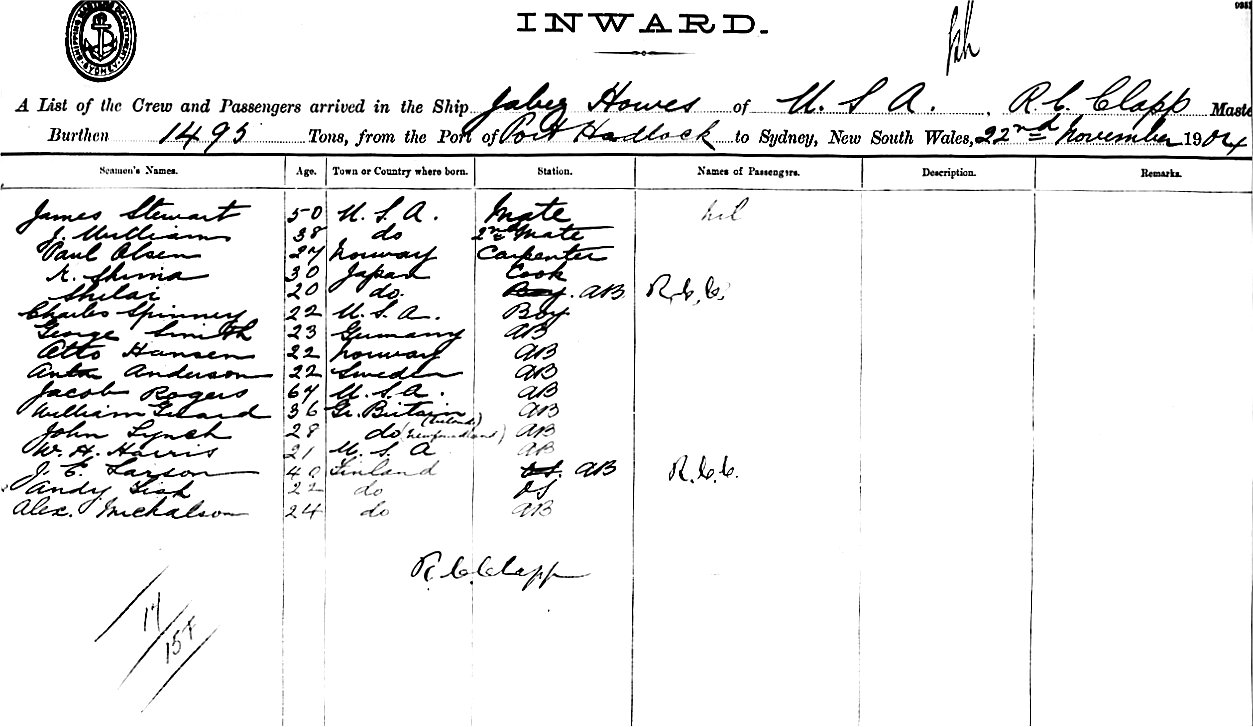 INWARD.
A List of the Crew and Passengers arrived in the Ship Jabez Howes of U. S A. R. C. Clapp Maste
Burthen 1495 Tons, from the Port of Port Hadlock to Sydney, New South Wales, 22nd November 1904
Seamen's Names. Age. Town or Country where born. Station. Names of Passengers. Description. Remarks.
James Stewart 50 U. S. A. Mate nil
J. Mulliams 38 do 2nd Mate
Paul Olsen 27 Norway Carpenter
K. Shima 30 Japan Cook
Shilai 20 do. Boy. AB R.C.C.
Charles Spinney 22 U. S. A. Boy
George Smith 23 Germany AB
Otto Hansen 22 Norway AB
Anderson 22 Sweden AB
Jacob Rogers 64 U. S. A. AB
William Guard 36 Gr. Britain (Ireland) AB
John Lynch 28 do (Newfoundland) AB
W. H. Harris 21 U. S A AB
J. E. Larson 40 Finland OS. AB R.C.C.
Andy Fisk 22 do OS
Alex. Michalson 24 do AB
R. C. Clapp